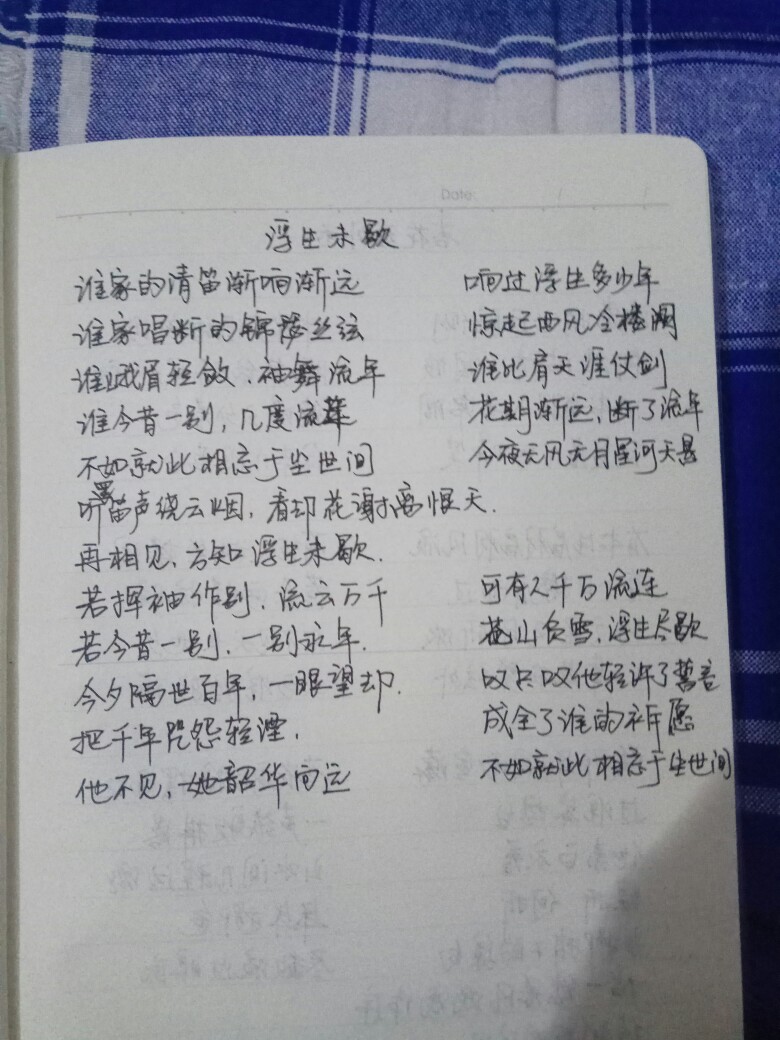 Date
浮生未歇
谁家的清笛渐响渐远 响过浮生多少年
谁家唱断的锦瑟丝弦 惊起西风冷楼阑
谁娥眉轻敛、袖舞流年 谁比肩天涯仗剑
谁今昔一别,几度流年 花期渐远,断了流年
不如就此相忘于尘世间 今夜无风无月星河天悬
听罢笛声绕云烟,看却花谢离恨天.
再相见,方知浮生未歇.
若挥袖作别、流云万千 可有人千万流连
若今昔一别、一别永年. 苍山负雪,浮生尽歇
今夕隔世百年,一眼望却. 叹只叹他轻许了誓言
把千年咒怨轻湮, 成全了谁的祈愿
他不见,她韶华向远 不如就此相忘于尘世间